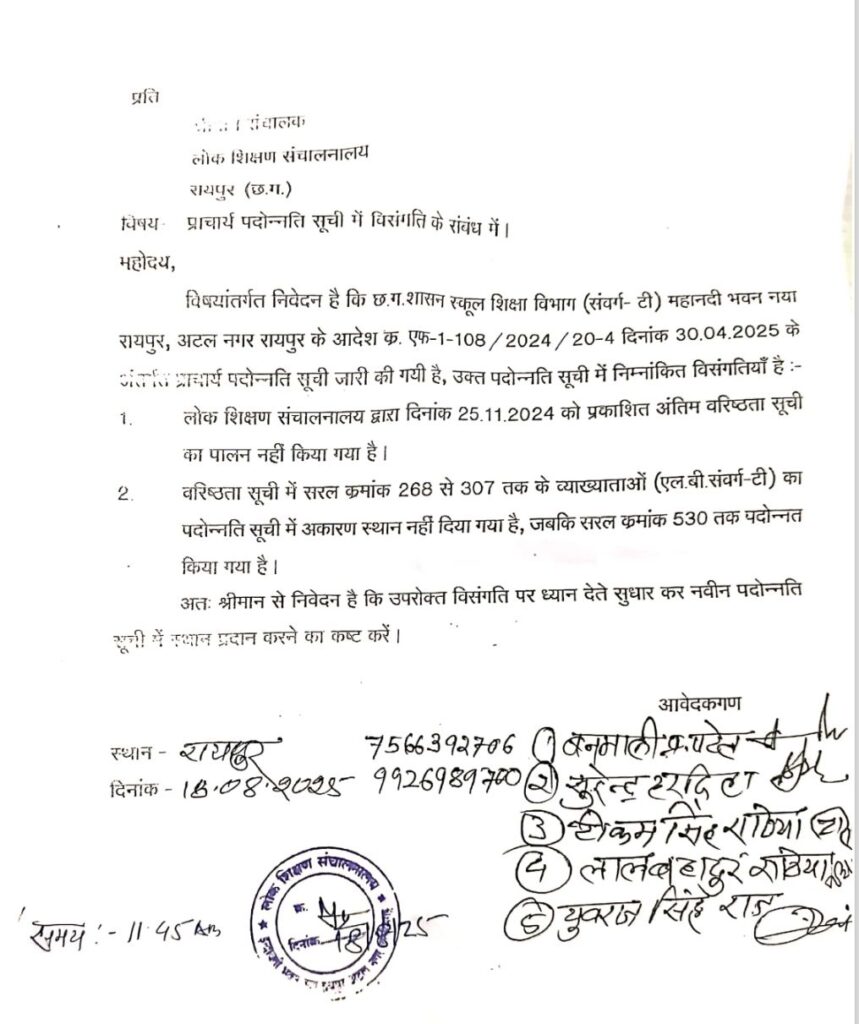 प्रति
संचालक
लोक शिक्षण संचालनालय
रायपुर (छ.ग.)
विषय- प्राचार्य पदोन्नति सूची में विसंगति के संबंध में।
महोदय,
विषयांतर्गत निवेदन है कि छ.ग.शासन स्कूल शिक्षा विभाग (संवर्ग- टी) महानदी भवन नया
रायपुर, अटल नगर रायपुर के आदेश क्र. एफ-1-108/2024/20-4 दिनांक 30.04.2025 के
अंतर्गत प्राचार्य पदोन्नति सूची जारी की गयी है, उक्त पदोन्नति सूची में निम्नांकित विसंगतियाँ है :-
1. लोक शिक्षण संचालनालय द्वारा दिनांक 25.11.2024 को प्रकाशित अंतिम वरिष्ठता सूची
का पालन नहीं किया गया है।
2. वरिष्ठता सूची में सरल क्रमांक 268 से 307 तक के व्याख्याताओं (एल.बी.संवर्ग-टी) का
पदोन्नति सूची में अकारण स्थान नहीं दिया गया है, जबकि सरल क्रमांक 530 तक पदोन्नत
किया गया है।
अतः श्रीमान से निवेदन है कि उपरोक्त विसंगति पर ध्यान देते सुधार कर नवीन पदोन्नति
सूची में स्थान प्रदान करने का कष्ट करें।
आवेदकगण
स्थान - रायपुर 7566392706 ① बनमाली प्र. पटेल
दिनांक - 18.08.2025 9926989700 ② सुरेन्द्र
③ टीकम सिंह राठिया
④ लाल बहादुर राठिया
⑤ युवराज सिंह राज
समय :- 11.45 Am
लोक शिक्षण संचालनालय
क्र.
दिनांक 18/8/25